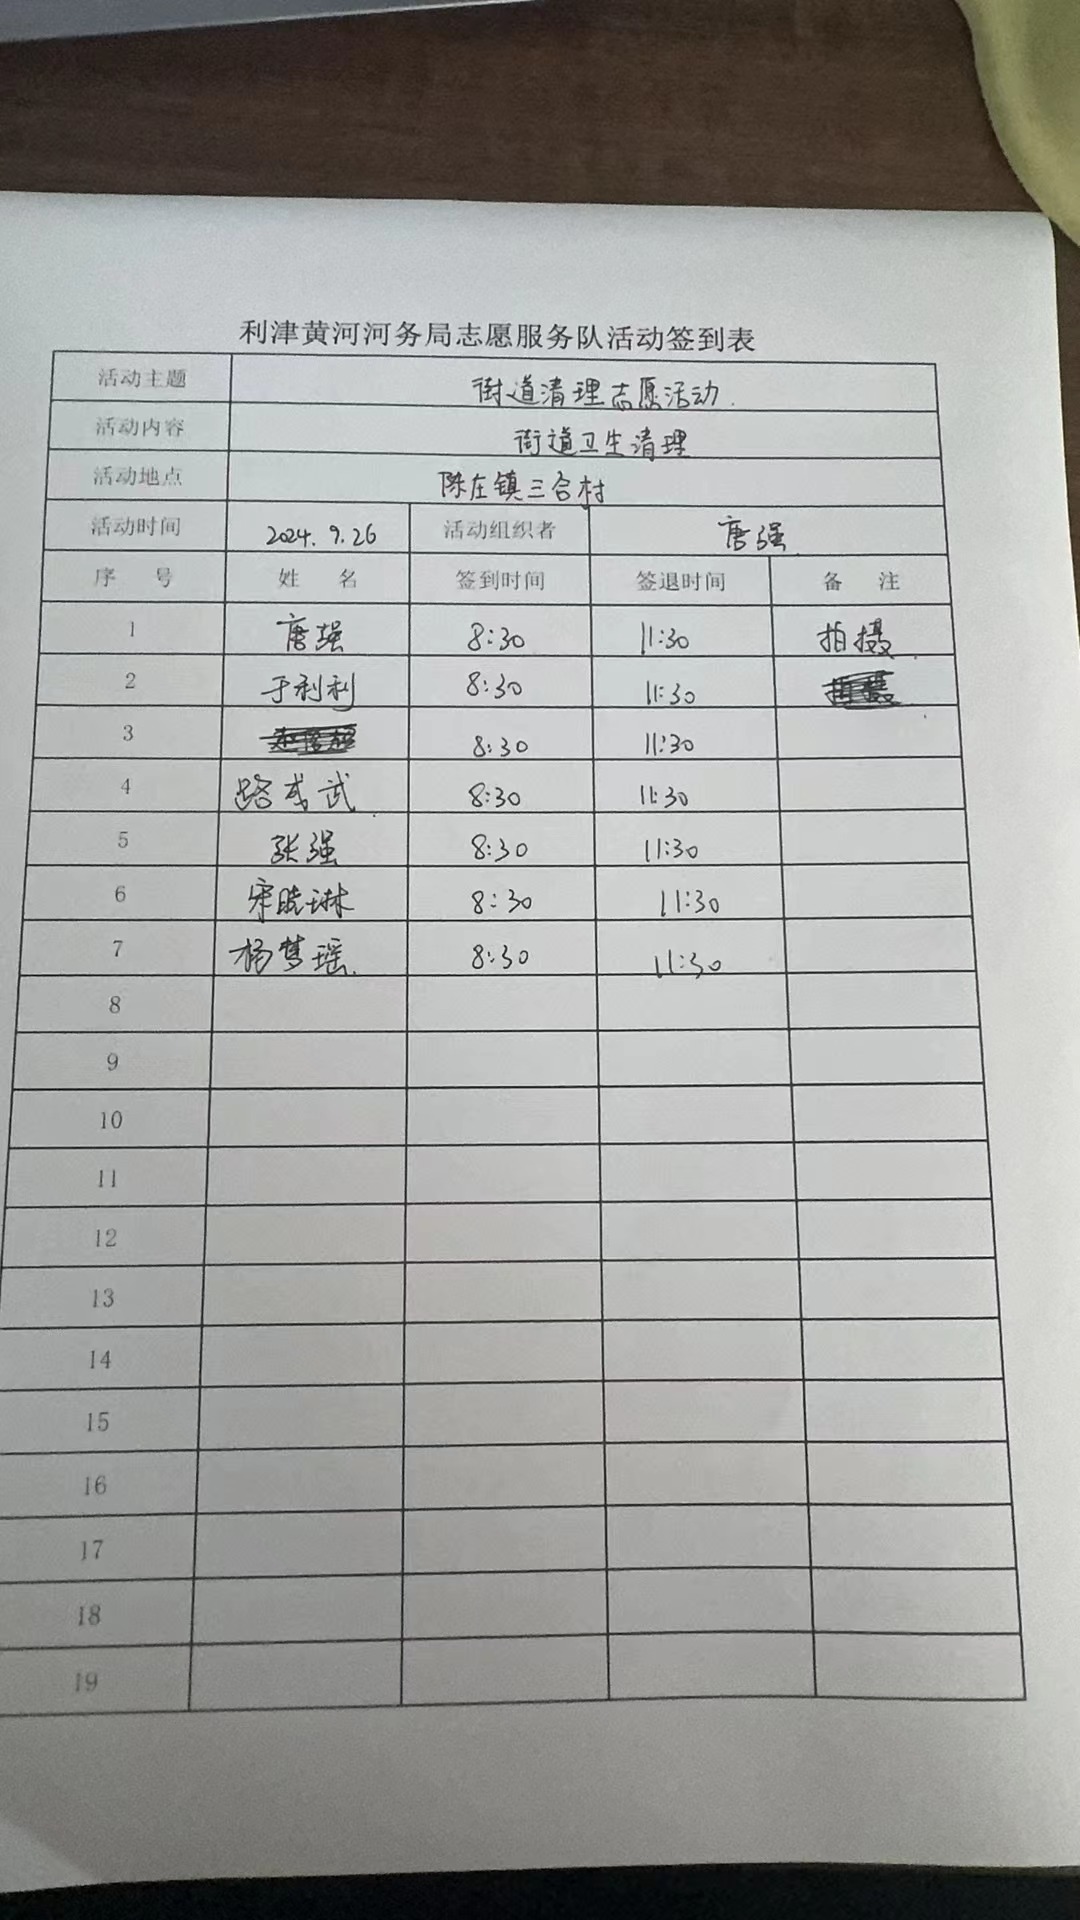 利津黄河河务局志愿服务队活动签到表
活动主题 街道清理志愿活动.
活动内容 街道卫生清理
活动地点 陈庄镇三合村
活动时间 2024.9.26 活动组织者 唐强
序 号 姓 名 签到时间 签退时间 备 注
1 唐强 8:30 11:30 拍摄.
2 于利利 8:30 11:30
3 8:30 11:30
4 8:30 11:30
5 张强 8:30 11:30
6 宋晓琳 8:30 11:30
7 杨梦瑶. 8:30 11:30
8
9
10
11
12
13
14
15
16
17
18
19